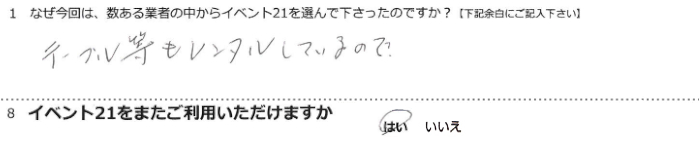 1 なぜ今回は、数ある業者の中からイベント21を選んで下さったのですか？【下記余白にご記入下さい】
テーブル等もレンタルしているので
8 イベント21をまたご利用いただけますか
はい いいえ